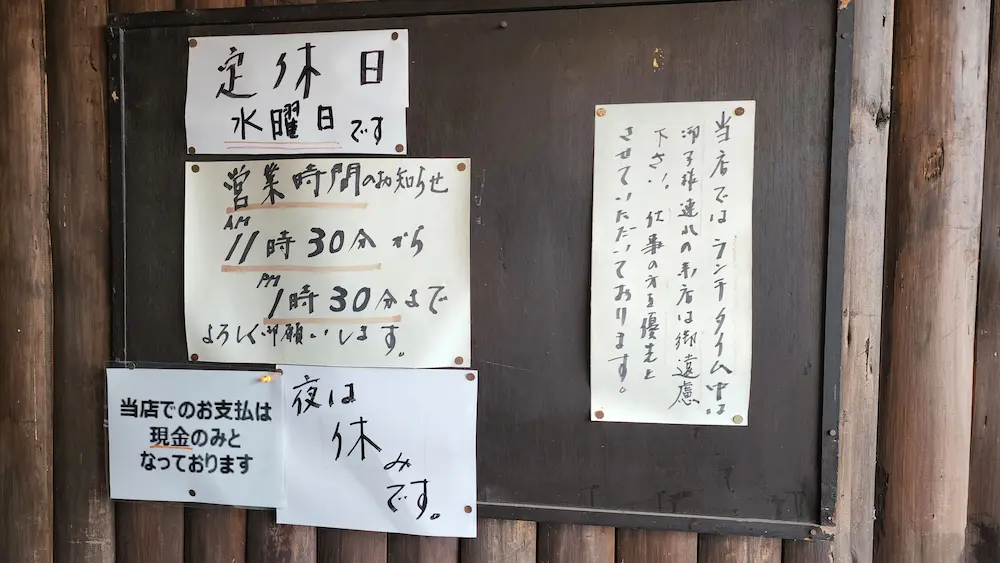 定休日
水曜日です
営業時間のお知らせ
AM
11時30分から
PM
1時30分まで
よろしく御願いします。
当店でのお支払は
現金のみと
なっております
夜は
休み
です。
当店ではランチタイム中は
御子様連れの来店は御遠慮
下さい。仕事の方を優先と
させていただいております。